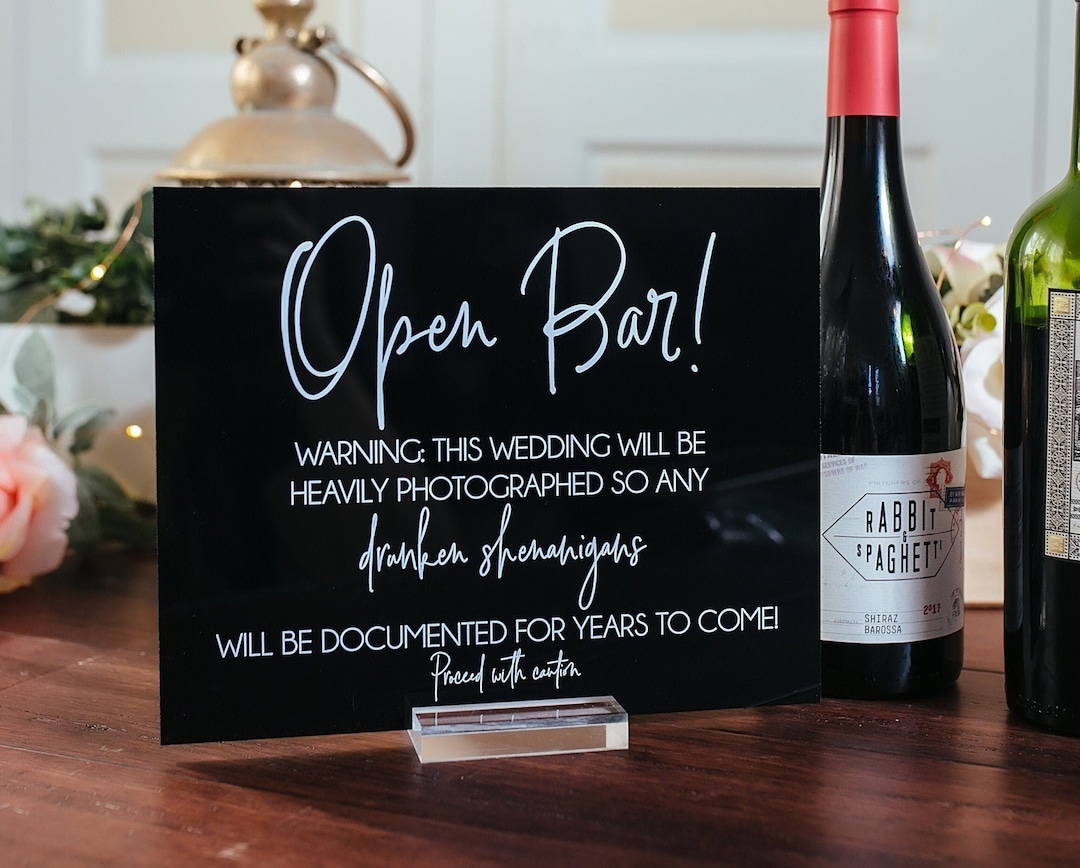 Open Bar!
WARNING: THIS WEDDING WILL BE
HEAVILY PHOTOGRAPHED SO ANY
drunken shenanigans
WILL BE DOCUMENTED FOR YEARS TO COME!
Proceed with caution
RABBIT
&
SPAGHETTI
2017
SHIRAZ
BAROSSA